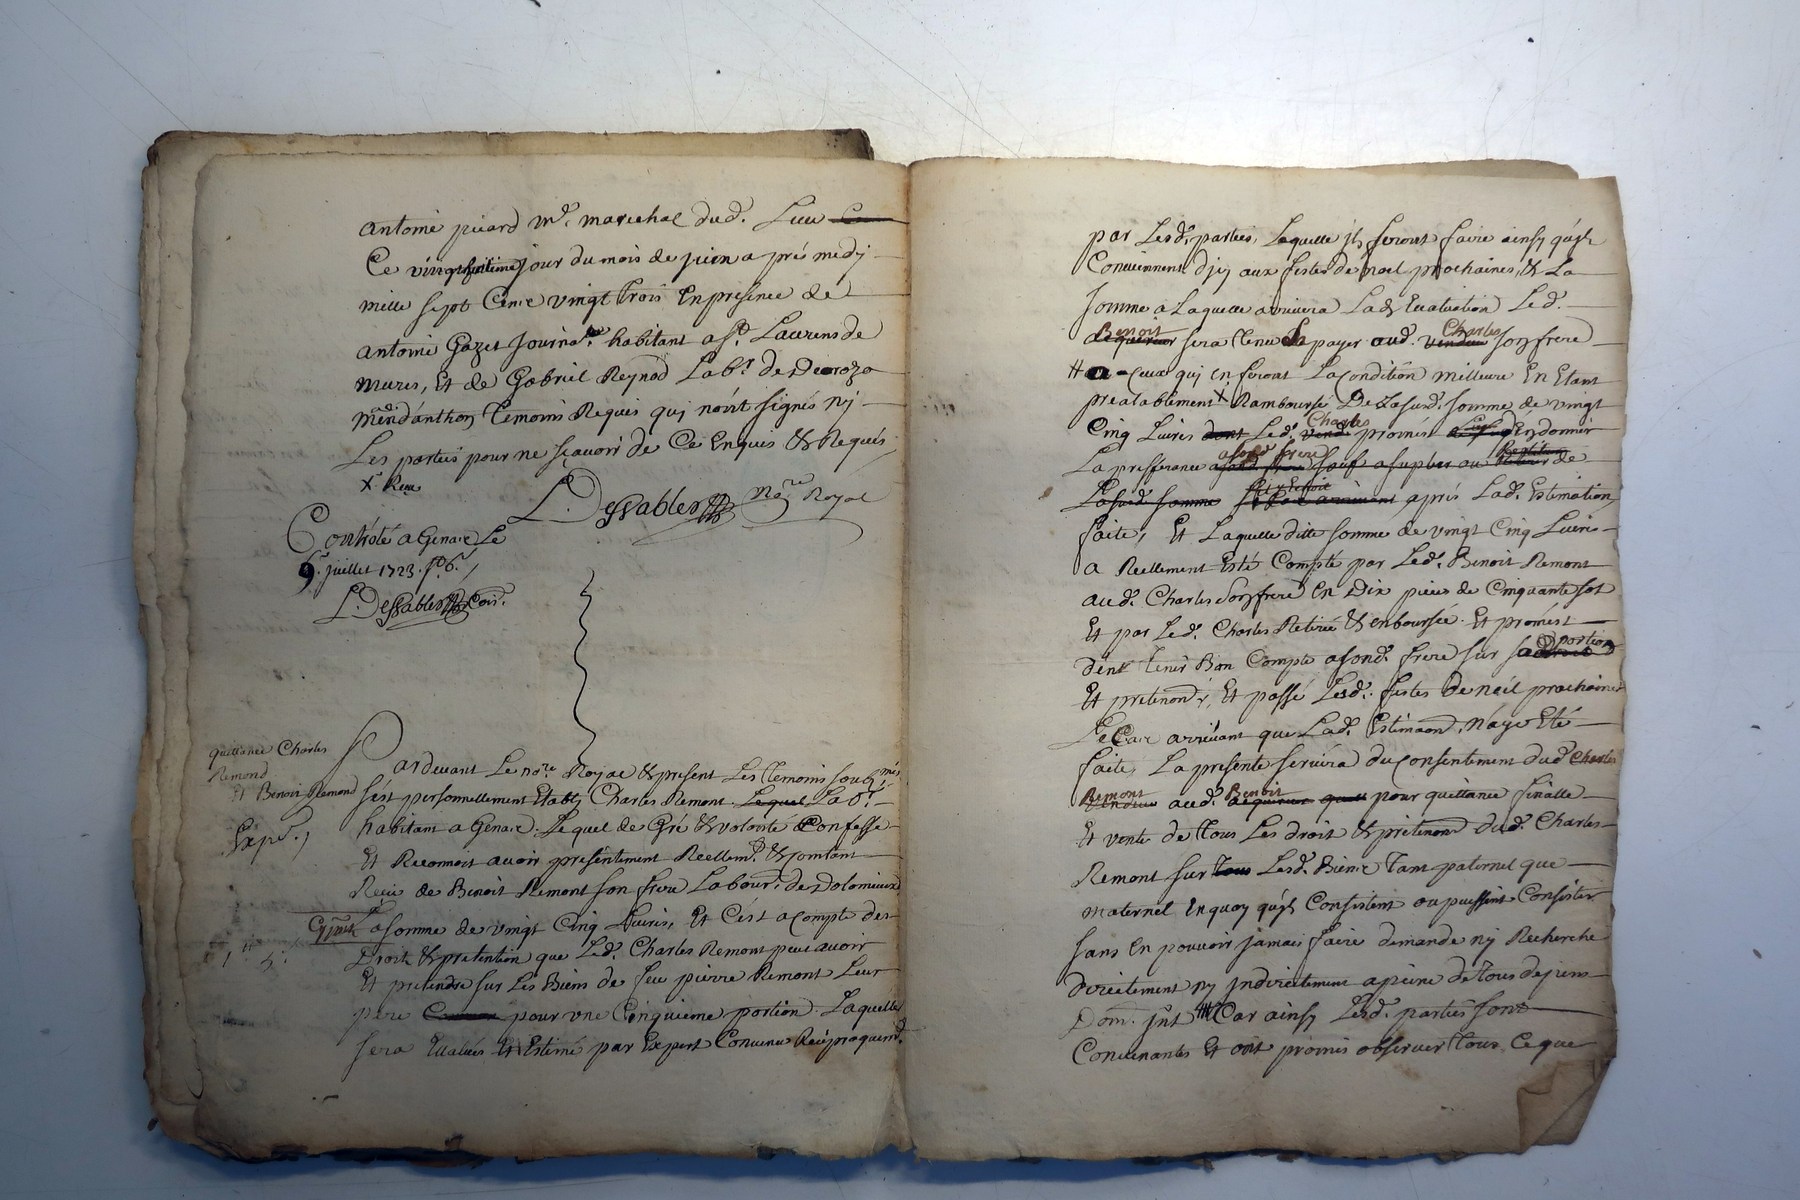 antoine picard m.d marechal dud. Lieu
Ce vingthuitieme jour du mois de juin aprés medj
mille sept Cent vingt trois En presence de
antoine Gazet Journa.r habitant a s.t Laurens de
mures, Et de Gabriel Reynod Lab.r de
Temoins Requis quj n'ont signés nj
Les parties pour ne sçavoir de Ce Enquis & Requis
L. Dessables No.re Royal
Contrôlé a Genas Le
juillet 1723.
L. Dessables Com.s
quittance Charles
Remond
Et Benoit Remond
Exp.
Pardevant Le no.re Royal & present Les Temoins soub.nés
s'est personnellement Etablj Charles Remont Lequel Lab.r
habitant a Genas. Lequel de Gré & volonté Confesse
Et Reconnoit avoir presentement Reellem.t & Comtant
Reçu de Benoit Remont son frere Labour.r de Dolomieux
La somme de vingt Cinq Livres, Et C'est a compte des
Droit & pretention que Led. Charles Remont peut avoir
Et pretendre sur Les Biens de feu pierre Remont Leur
pere pour une Cinquieme portion. Laquelle
sera Evaluée Et Estimé par Expert Convenu Reciproquem.t
par Lesd. parties, Laquelle jls feront faire ainsy qu'jls
Conviennent d'jcy aux festes de noel prochaines, & La
somme a Laquelle arrivera Lad. Evaluation Led.
Benoit Charles
acquereur sera Tenu La payer aud. vendeur son frere
a ceux quj en feront La condition meilleure En Etant
prealablement Rambourse De La sud. somme de vingt
Charles
Cinq Livres dont Led. vend. promés En donner
a sond. frere
La prefferance a sond. frere sauf a supleer ou de
La sud. somme aprés Lad. Estimation
faite, Et Laquelle ditte somme de vingt Cinq Livres
a Reellement Esté Compté par Led. Benoit Remont
aud. Charles son frere En Dix pieces de Cinquante sot
Et par Led. Charles Retirée & emboursée. Et promést
d'en Tenir Bon Compte a sond. frere sur sa portion
Et pretenon.s, Et passé Lesd. festes De noel prochaines
Le Cas arrivant que Lad. Estimaon. N'aye Eté
faite, La presente servira du consentement dud. Charles
Remont Benoit
vendeur aud. acquereur pour quittance finalle
Et vente de Tous Les droit & pretenons dud. Charles
Remont sur Tous Lesd. Biens Tant paternel que
maternel En quoy qu'jls Consistent ou puissent Consister
sans En pouvoir jamais faire demande nj Recherche
directement nj jndirectement a peine de Tous depens
Dom. jnt Car ainsy Lesd. parties sont
Convenantes Et ont promis observer Tous Ce que